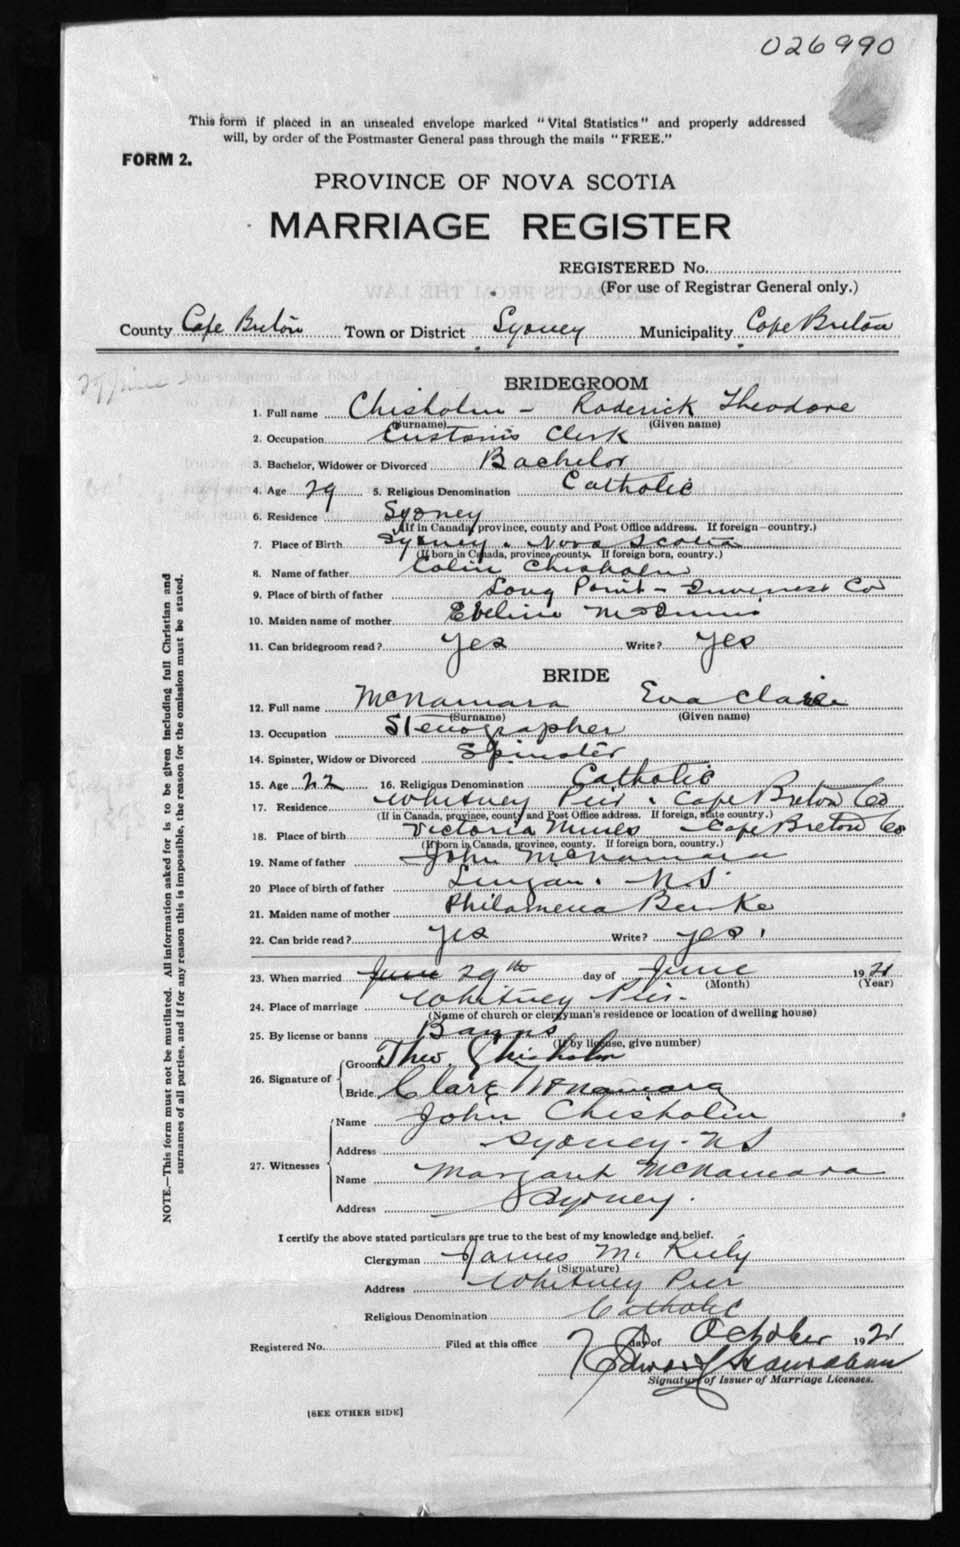 026990
This form if placed in an unsealed envelope marked "Vital Statistics" and properly addressed
will, by order of the Postmaster General pass through the mails "FREE."
FORM 2.
PROVINCE OF NOVA SCOTIA
MARRIAGE REGISTER
REGISTERED No.
(For use of Registrar General only.)
County Cape Breton Town or District Sydney Municipality Cape Breton
29 June
BRIDEGROOM
1. Full name Chisholm - Roderick Theodore
(Surname) (Given name)
2. Occupation Customs Clerk
3. Bachelor, Widower or Divorced Bachelor
4. Age 29 5. Religious Denomination Catholic
6. Residence Sydney
(If in Canada, province, county and Post Office address. If foreign-country.)
7. Place of Birth Sydney. Nova Scotia
(If born in Canada, province, county. If foreign born, country.)
8. Name of father Colin Chisholm
9. Place of birth of father Long Point - Inverness Co
10. Maiden name of mother Eveline McInnis
11. Can bridegroom read? Yes Write? Yes
BRIDE
12. Full name McNamara Eva Claire
(Surname) (Given name)
13. Occupation Stenographer
14. Spinster, Widow or Divorced Spinster
15. Age 22 16. Religious Denomination Catholic
17. Residence Whitney Pier. Cape Breton Co
(If in Canada, province, county and Post Office address. If foreign, state country.)
18. Place of birth Victoria Mines Cape Breton Co
(If born in Canada, province, county. If foreign born, country.)
19. Name of father John McNamara
20 Place of birth of father Lingan. N.S.
21. Maiden name of mother Philomena Burke
22. Can bride read? yes Write? yes.
23. When married June 29th day of June 1921
(Month) (Year)
24. Place of marriage Whitney Pier.
(Name of church or clergyman's residence or location of dwelling house)
25. By license or banns Banns
(If by license, give number)
Groom Theo Chisholm
26. Signature of
Bride. Clare McNamara
Name John Chisholm
Address Sydney. N S
27. Witnesses
Name Margaret McNamara
Address Sydney.
I certify the above stated particulars are true to the best of my knowledge and belief.
Clergyman James M. Kiely
(Signature)
Address Whitney Pier
Religious Denomination Catholic
Registered No. Filed at this office day of October 1921
Edward
Signature of Issuer of Marriage Licenses.
[SEE OTHER SIDE]
NOTE.—This form must not be mutilated. All information asked for is to be given including full Christian and
surnames of all parties, and if for any reason this is impossible, the reason for the omission must be stated.